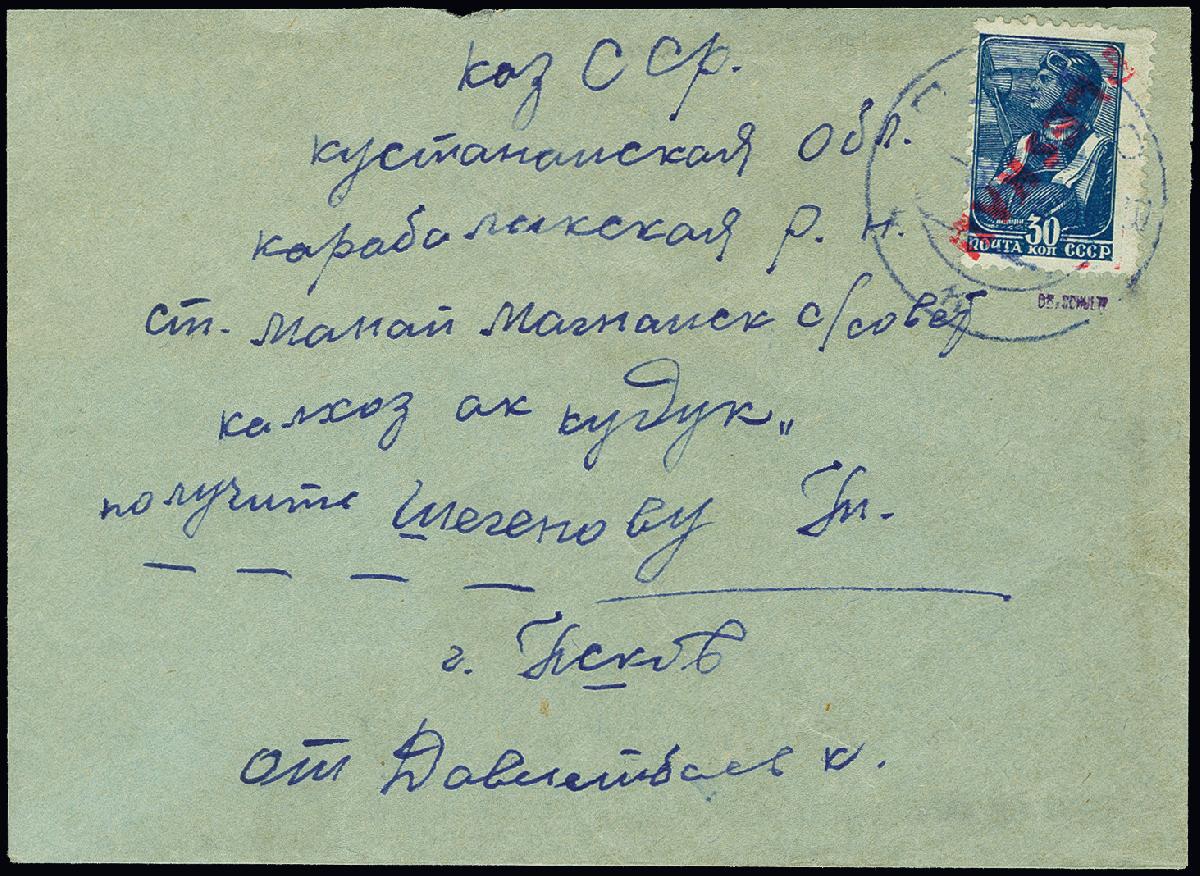 каз ССр.
кустанаиская обл.
карабаликская р. н.
ст. манай магнаиск с/совет
калхоз ак кудук„
получите Шегенову Т.
г. Псков
от Давлетбаев к.
30
ПОЧТА КОП СССР